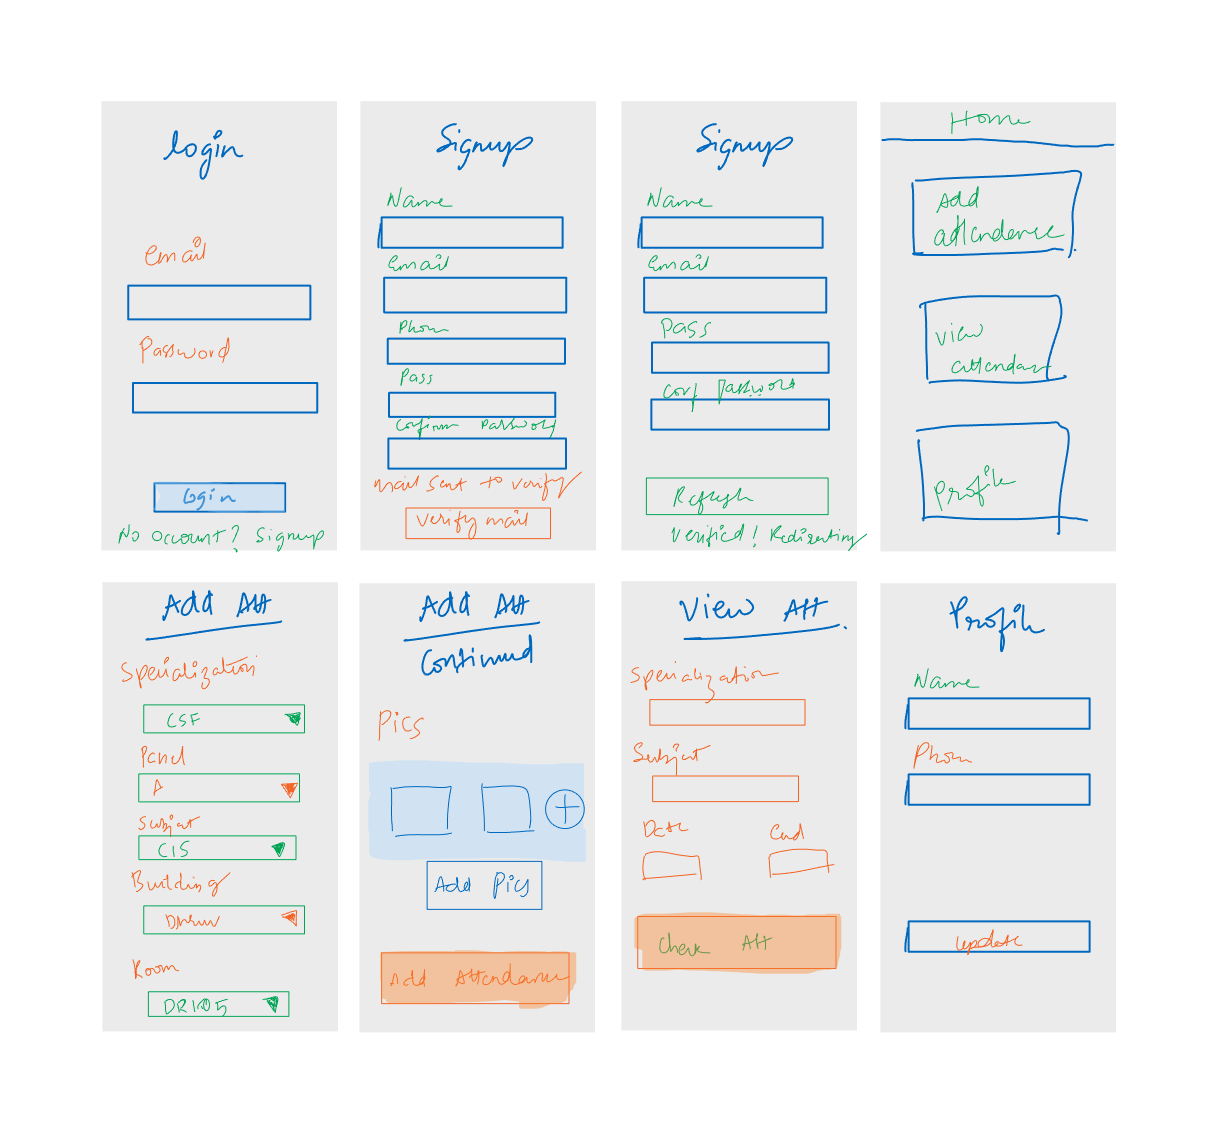 login
Email
Password
Login
No account? Signup
Signup
Name
Email
Phone
Pass
Confirm Password
Mail sent to verify
Verify mail
Signup
Name
Email
Pass
Conf Password
Refresh
Verified! Redirecting
Home
Add
attendance
View
Profile
Add Att
Specialization
CSF
Panel
A
Subject
CIS
Building
Room
DR105
Add Att
Continued
Pics
Add Pics
Add Attendance
View Att.
Specialization
Subject
Date
Check Att
Profile
Name
Phone
update